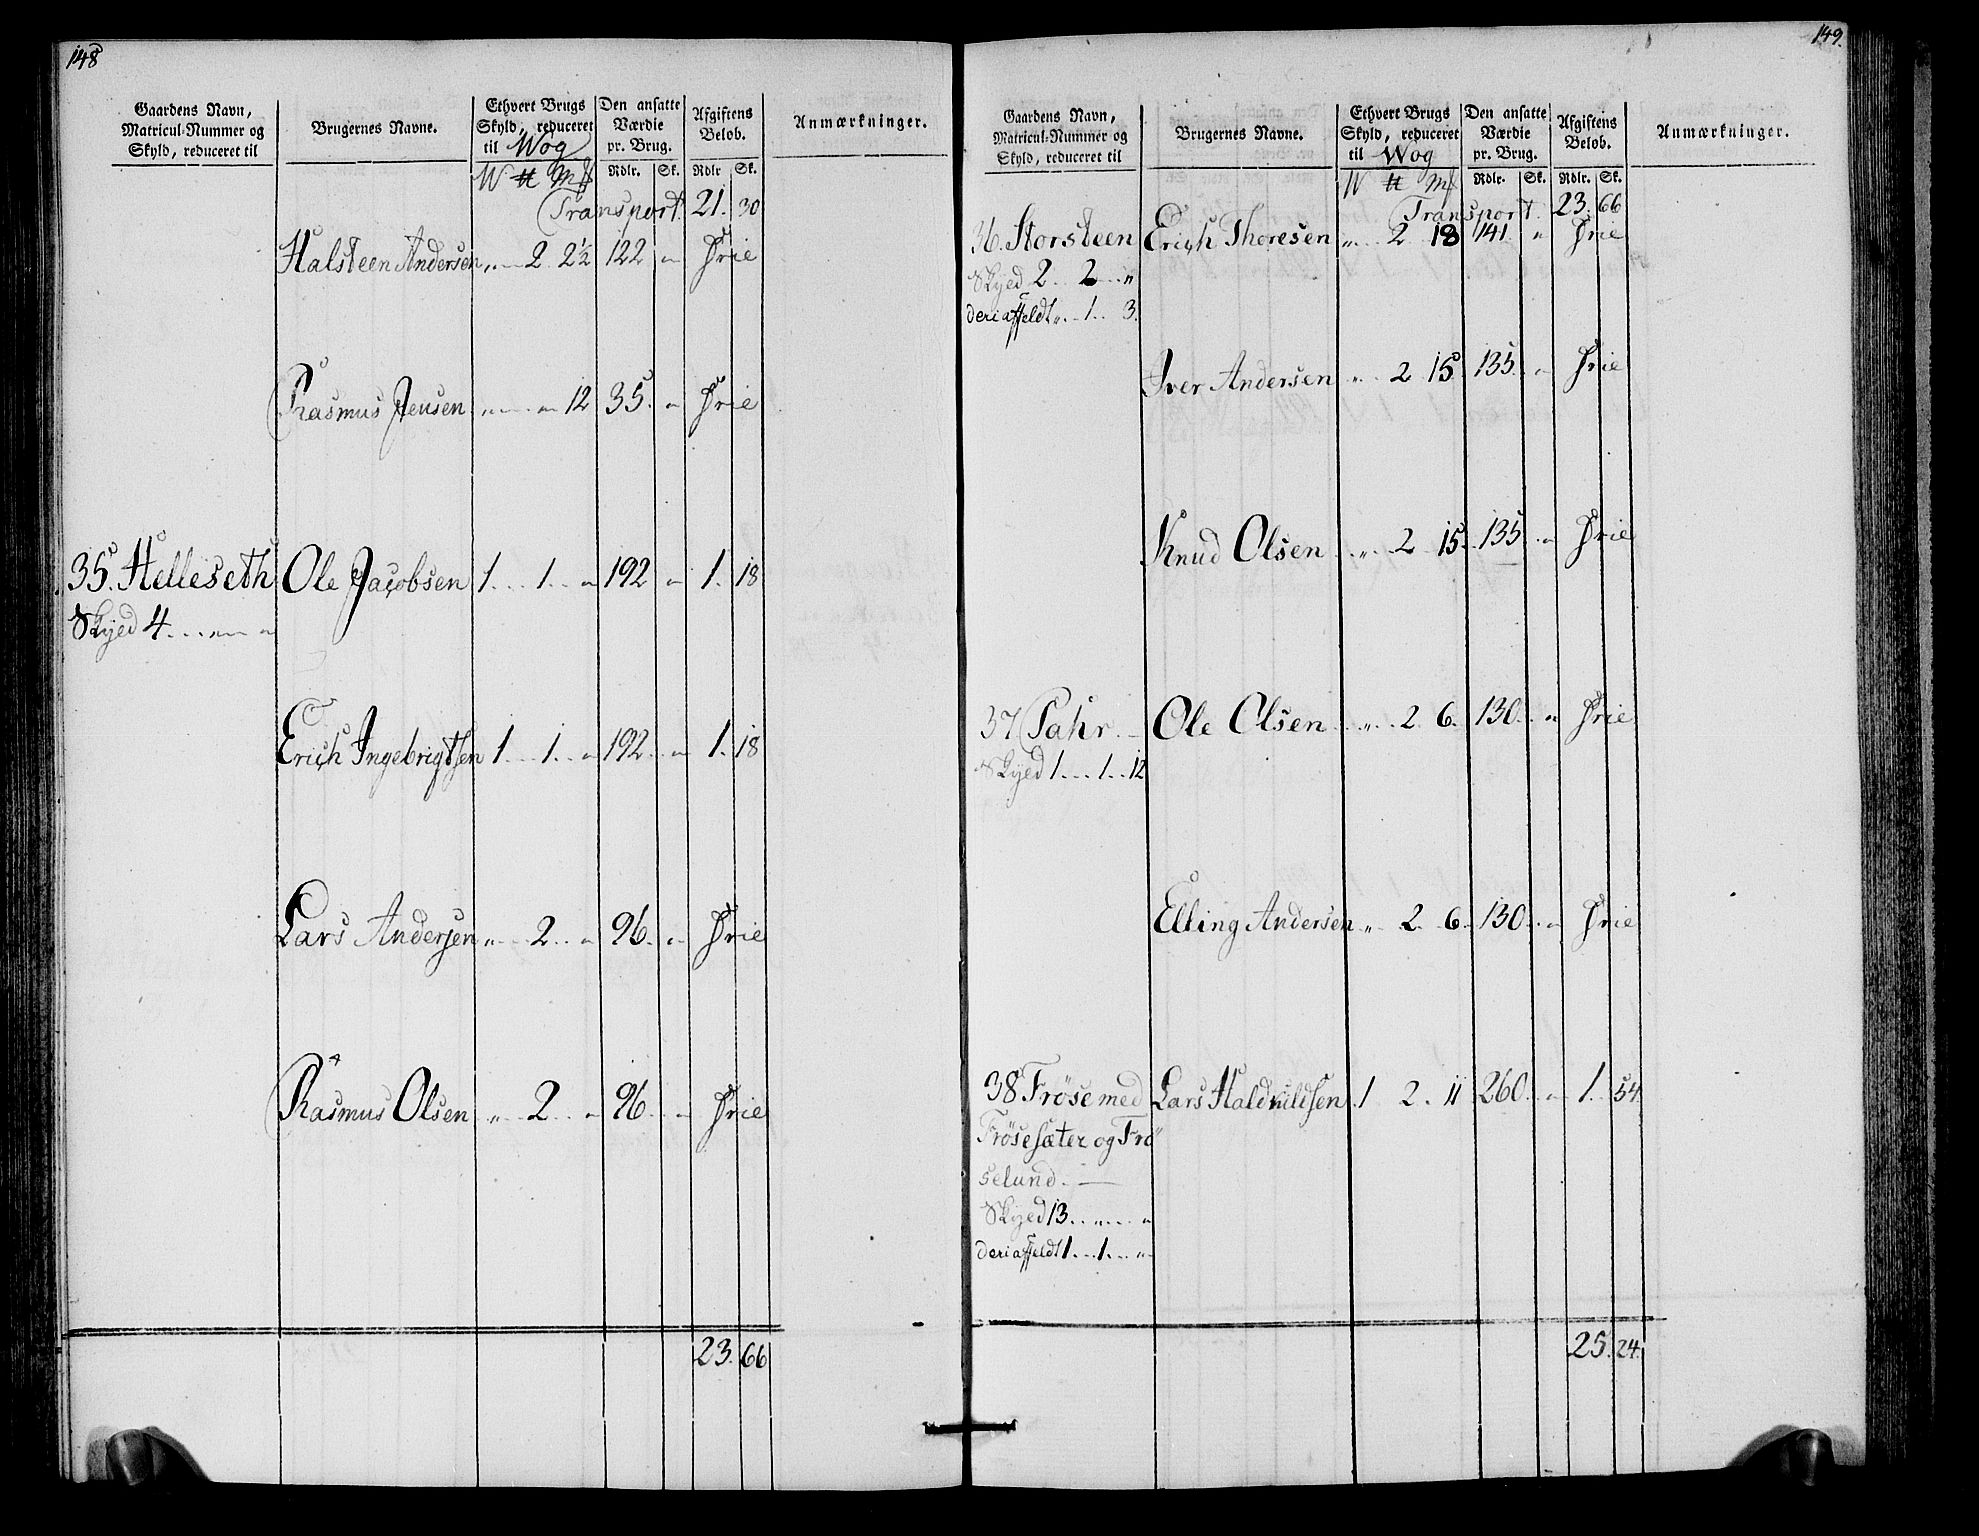 148
Gaardens Navn, Matricul-Nummer og Skyld, reduceret til | Brugernes Navne. | Ethvert Brugs Skyld, reduceret til Wog | Den ansatte Værdie pr. Brug. | Afgiftens Beløb. | Anmærkninger.
W ℔ Mk | Rdlr. Sk. | Rdlr Sk.
Transport. 21. 30
Halsteen Andersen „ 2 2½ 122 „ Frie
Rasmus Jensen „ „ 12 35. „ Frie
35. Helleseth Ole Jacobsen 1 1 „ 192 „ 1. 18
Skyed 4 „ „
Erich Ingebrigtsen 1 1. „ 192. „ 1. 18
Lars Andersen „ 2 „ 96. „ Frie
Rasmus Olsen „ 2 „ 96 „ Frie
23. 66
149.
Gaardens Navn, Matricul-Nummer og Skyld, reduceret til | Brugernes Navne. | Ethvert Brugs Skyld, reduceret til Wog | Den ansatte Værdie pr. Brug. | Afgiftens Beløb. | Anmærkninger.
W ℔ Mk | Rdlr. Sk. | Rdlr. Sk.
Transport. 23. 66
36. Storsteen Erich Thoresen „ 2 18 141 „ Frie
Skyed 2 2 „
deriaffeldt „ 1 3.
Iver Andersen „ 2 15. 135. „ Frie
Knud Olsen „ 2 15. 135 „ Frie
37 Pahr. Ole Olsen „ 2 6. 130. „ Frie
Skyed 1 1 12
Elling Andersen „ 2 6. 130. „ Frie
38 Fröse med Lars Haldvildsen 1 2. 11 260. „ 1. 54
Frösesæter og Frö
selund.
Skyed 13 „ „
deriaffeldt 1 1 „
25. 24.